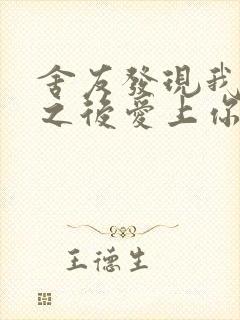 舍友發現我
之後愛上你
王德生